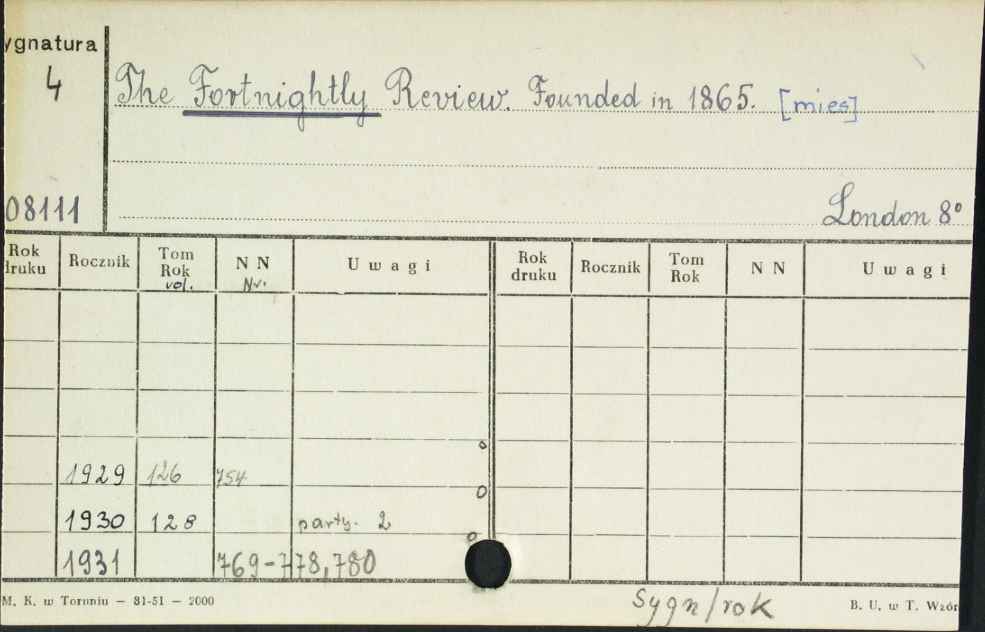 ygnatura
4
The Fortnightly Review. Founded in 1865. [mies]
08111
London 8°
Rok druku Rocznik Tom Rok vol. N N Nr. U w a g i Rok druku Rocznik Tom Rok N N U w a g i
1929 126 754
1930 128 party. 2
1931 769-778,780
M. K. w Toruniu — 81-51 — 2000
Sygn/rok
B. U. w T. Wzór